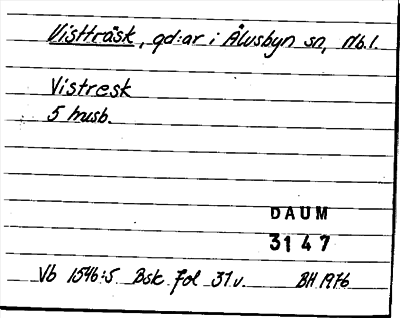 Vistträsk, gd:ar i Älvsbyn sn, Nb.l.
Vistresk
5 husb.
DAUM
3147
Vb 1546:5 Bsk fol 31v. BH 1976